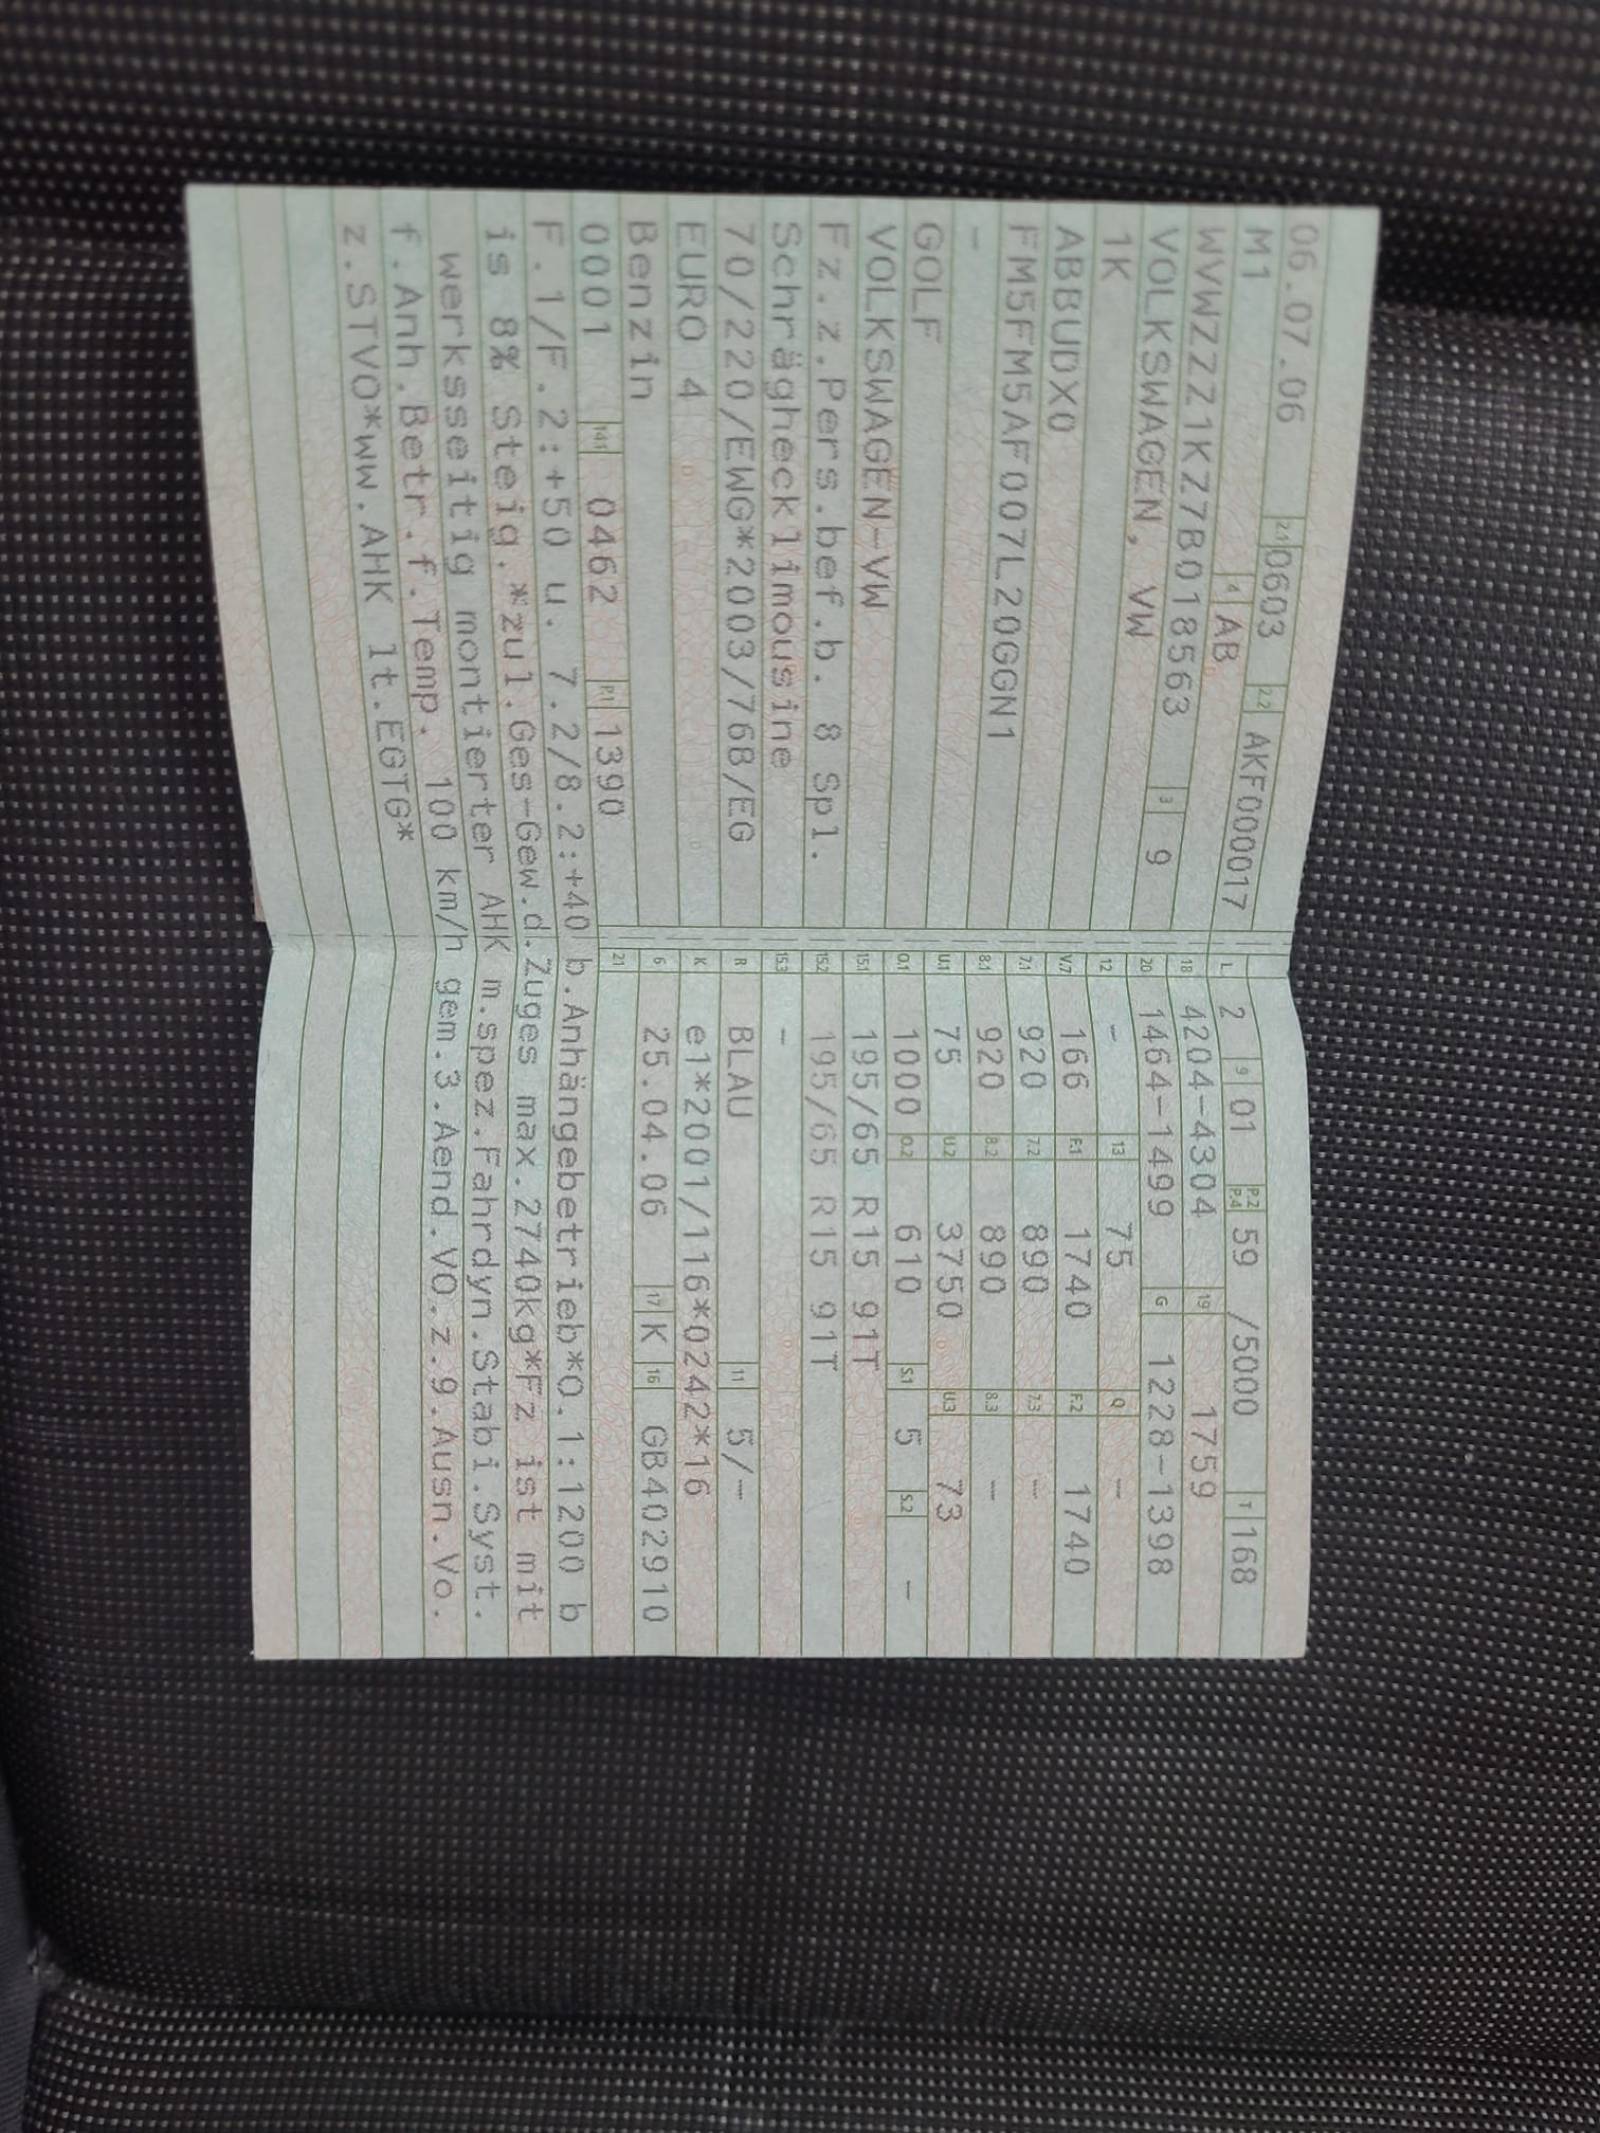 06.07.06 2.1 0603 2.2 AKF000017
M1 4 AB
WVWZZZ1KZ7B018563 3 9
VOLKSWAGEN, VW
1K
ABBUDX0
FM5FM5AF007L20GGN1
-
GOLF
VOLKSWAGEN-VW
Fz.z.Pers.bef.b. 8 Spl.
Schräghecklimousine
70/220/EWG*2003/76B/EG
EURO 4
Benzin
0001 14.1 0462 P.1 1390
L 2 9 01 P.2 P.4 59 /5000 T 168
18 4204-4304 19 1759
20 1464-1499 G 1228-1398
12 - 13 75 Q -
V.7 166 F.1 1740 F.2 1740
7.1 920 7.2 890 7.3 -
8.1 920 8.2 890 8.3 -
U.1 75 U.2 3750 U.3 73
O.1 1000 O.2 610 S.1 5 S.2 -
15.1 195/65 R15 91T
15.2 195/65 R15 91T
15.3 -
R BLAU 11 5/-
K e1*2001/116*0242*16
6 25.04.06 17 K 16 GB402910
21
F.1/F.2:+50 u. 7.2/8.2:+40 b.Anhängebetrieb*O.1:1200 b
is 8% Steig.*zul.Ges-Gew.d.Zuges max.2740kg*Fz ist mit
werksseitig montierter AHK m.spez.Fahrdyn.Stabi.Syst.
f.Anh.Betr.f.Temp. 100 km/h gem.3.Aend.VO.z.9.Ausn.Vo.
z.STVO*ww.AHK lt.EGTG*